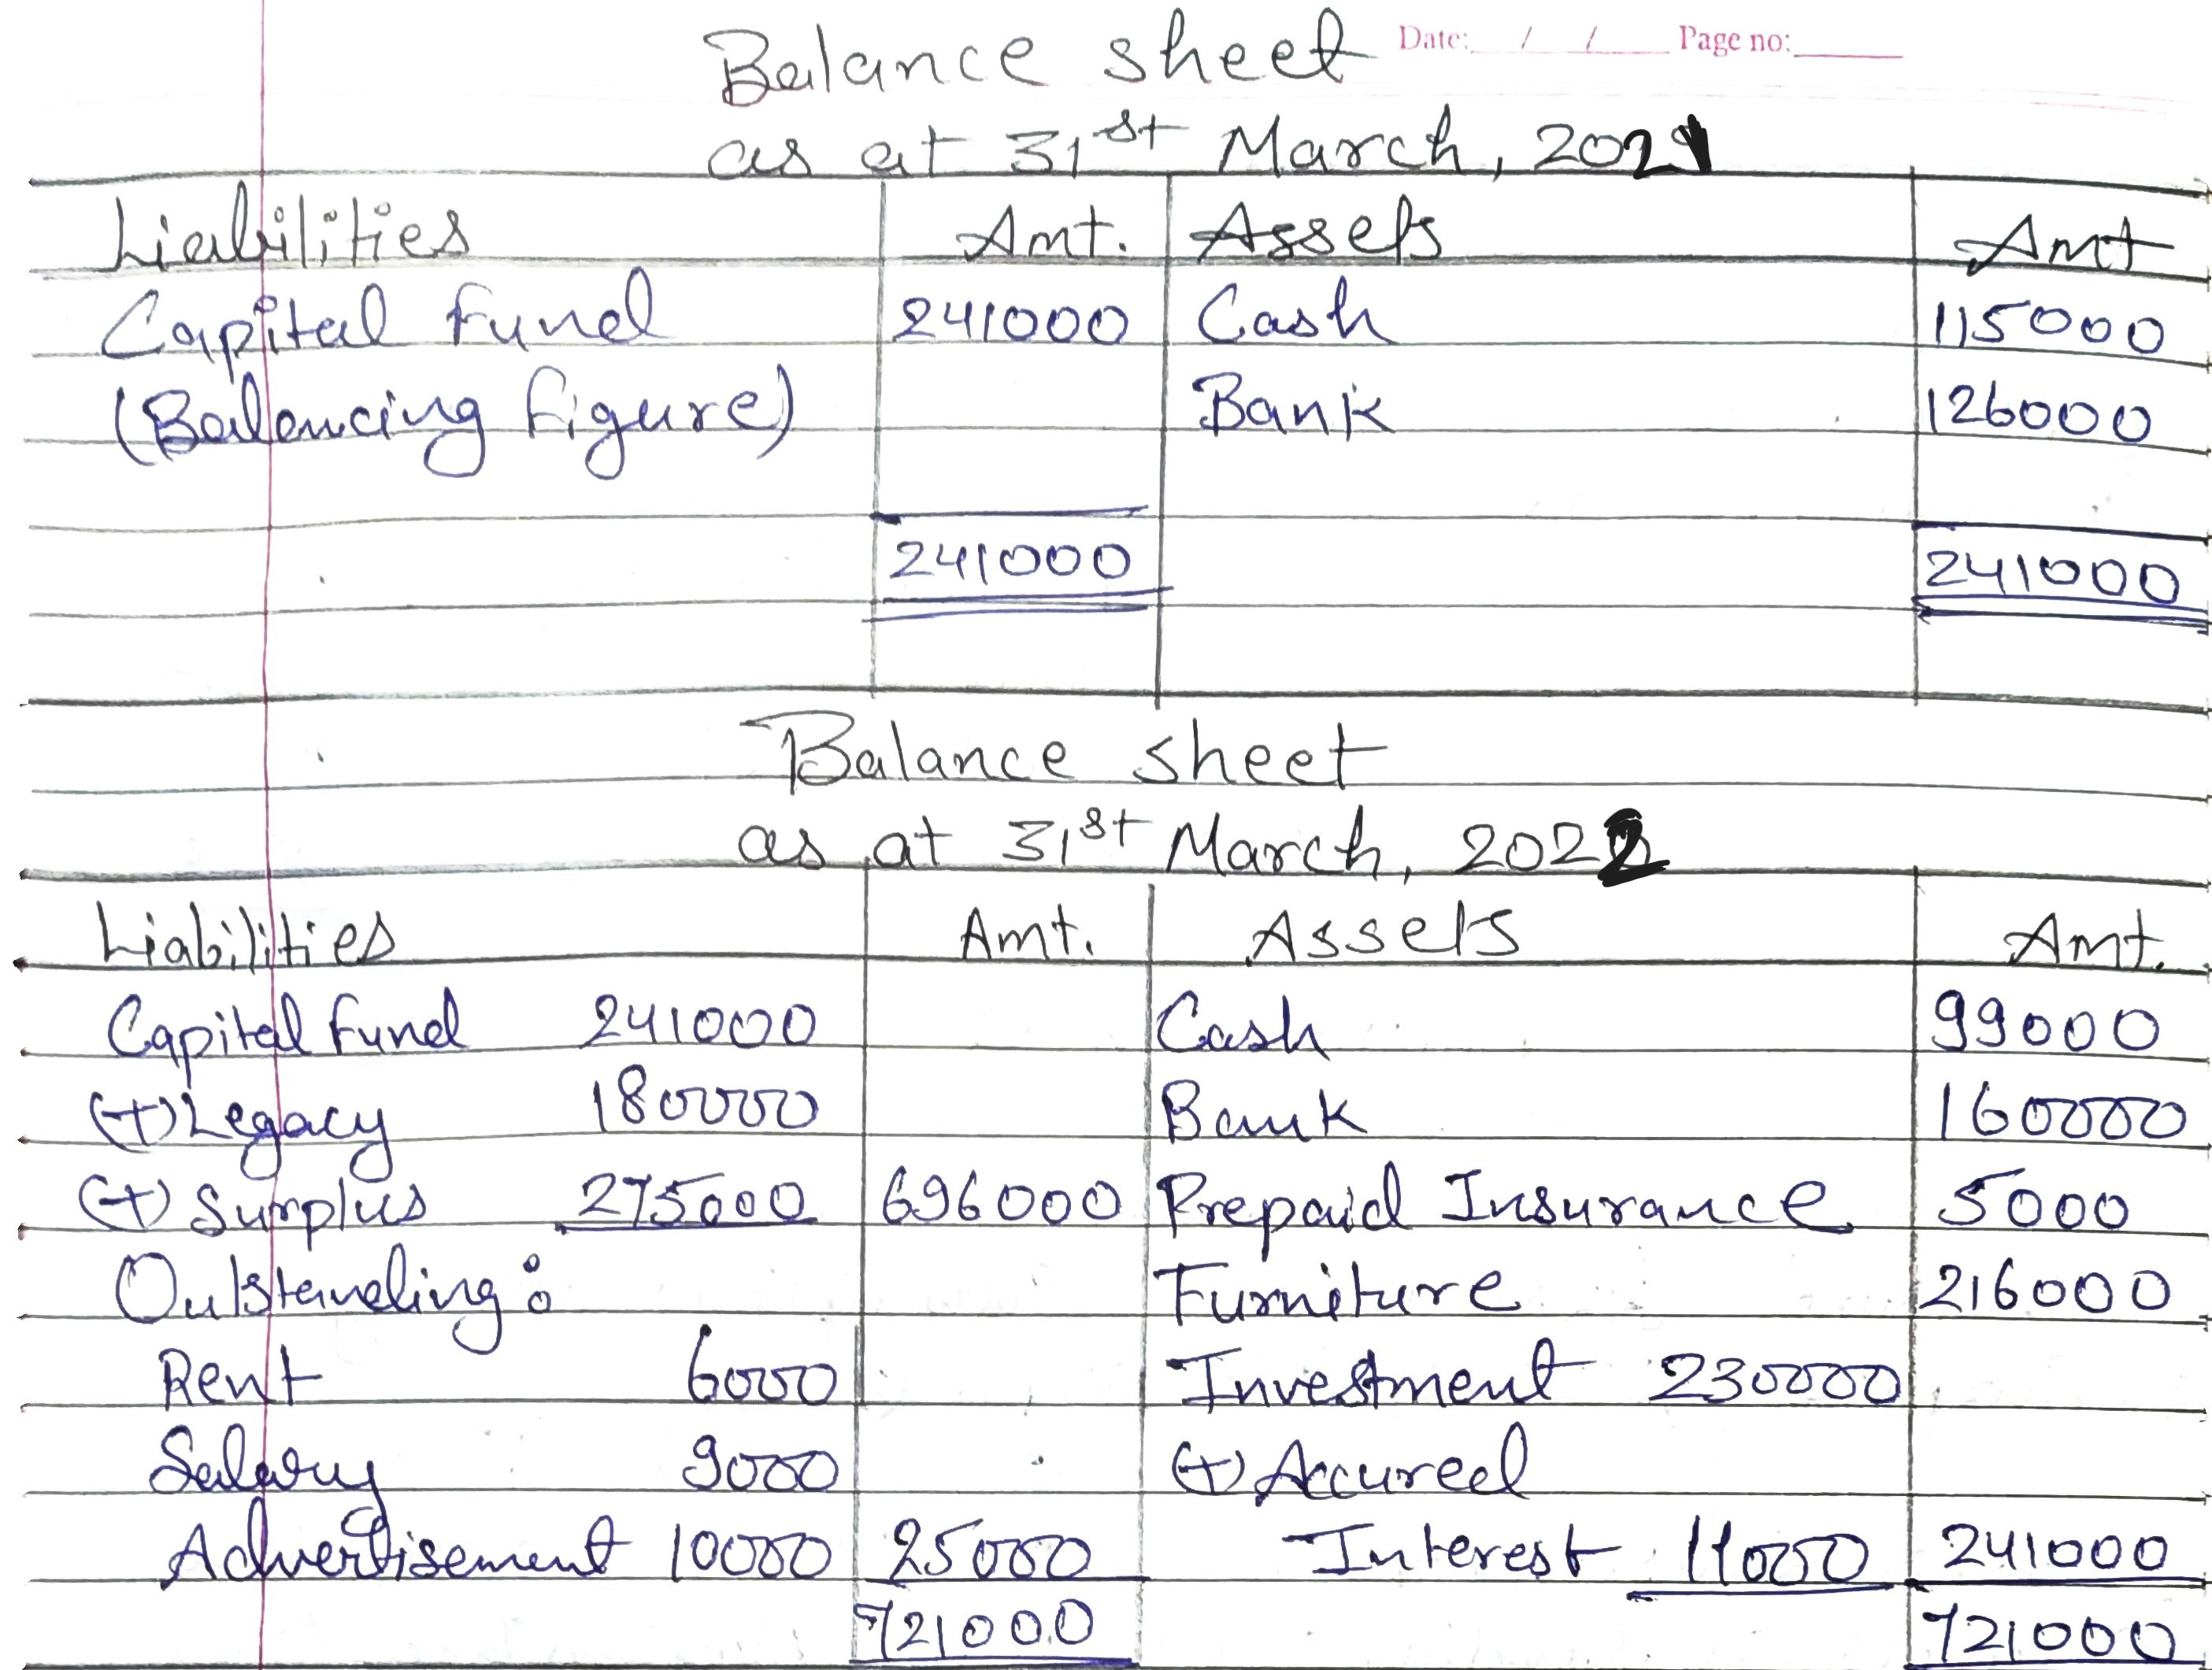 Date: / / Page no:
Balance sheet
as at 31st March, 2021
Liabilities Amt. Assets Amt
Capital fund 241000 Cash 115000
(Balancing figure) Bank 126000
241000 241000
Balance sheet
as at 31st March, 2022
Liabilities Amt. Assets Amt.
Capital fund 241000 Cash 99000
(+) Legacy 180000 Bank 160000
(+) Surplus 275000 696000 Prepaid Insurance 5000
Outstanding: Furniture 216000
Rent 6000 Investment 230000
Salary 9000 (+) Accureed
Advertisement 10000 25000 Interest 11000 241000
721000 721000